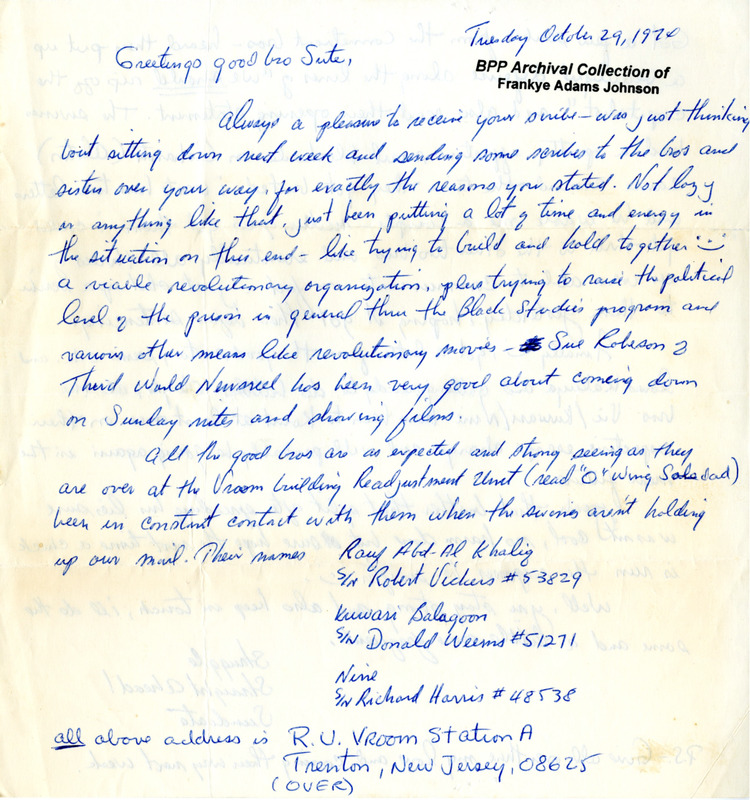 Tuesday October 29, 1974
Greetings good bro Sute,
BPP Archival Collection of
Frankye Adams Johnson
Always a pleasure to receive your scribe - was just thinking
bout sitting down next week and sending some scribes to the bros and
sisters over your way, for exactly the reasons you stated. Not lazy
or anything like that, just been putting a lot of time and energy in
the situation on this end - like trying to build and hold together
a viable revolutionary organization, plus trying to raise the political
level of the prison in general thru the Black Studies program and
various other means like revolutionary movies - Sue Robeson &
Third World Newsreel has been very good about coming down
on Sunday nites and showing films.
All the good bros are as expected and strong seeing as they
are over at the Vroom building Readjustment Unit (read "O" Wing Soledad)
been in constant contact with them when the swines aren't holding
up our mail. Their names
Rauf Abd-Al Khaliq
S/N Robert Vickers # 53829
Kuwasi Balagoon
S/N Donald Weems # 51271
Nine
S/N Richard Harris # 48538
all above address is R.U. Vroom Station A
Trenton, New Jersey, 08625
(OVER)